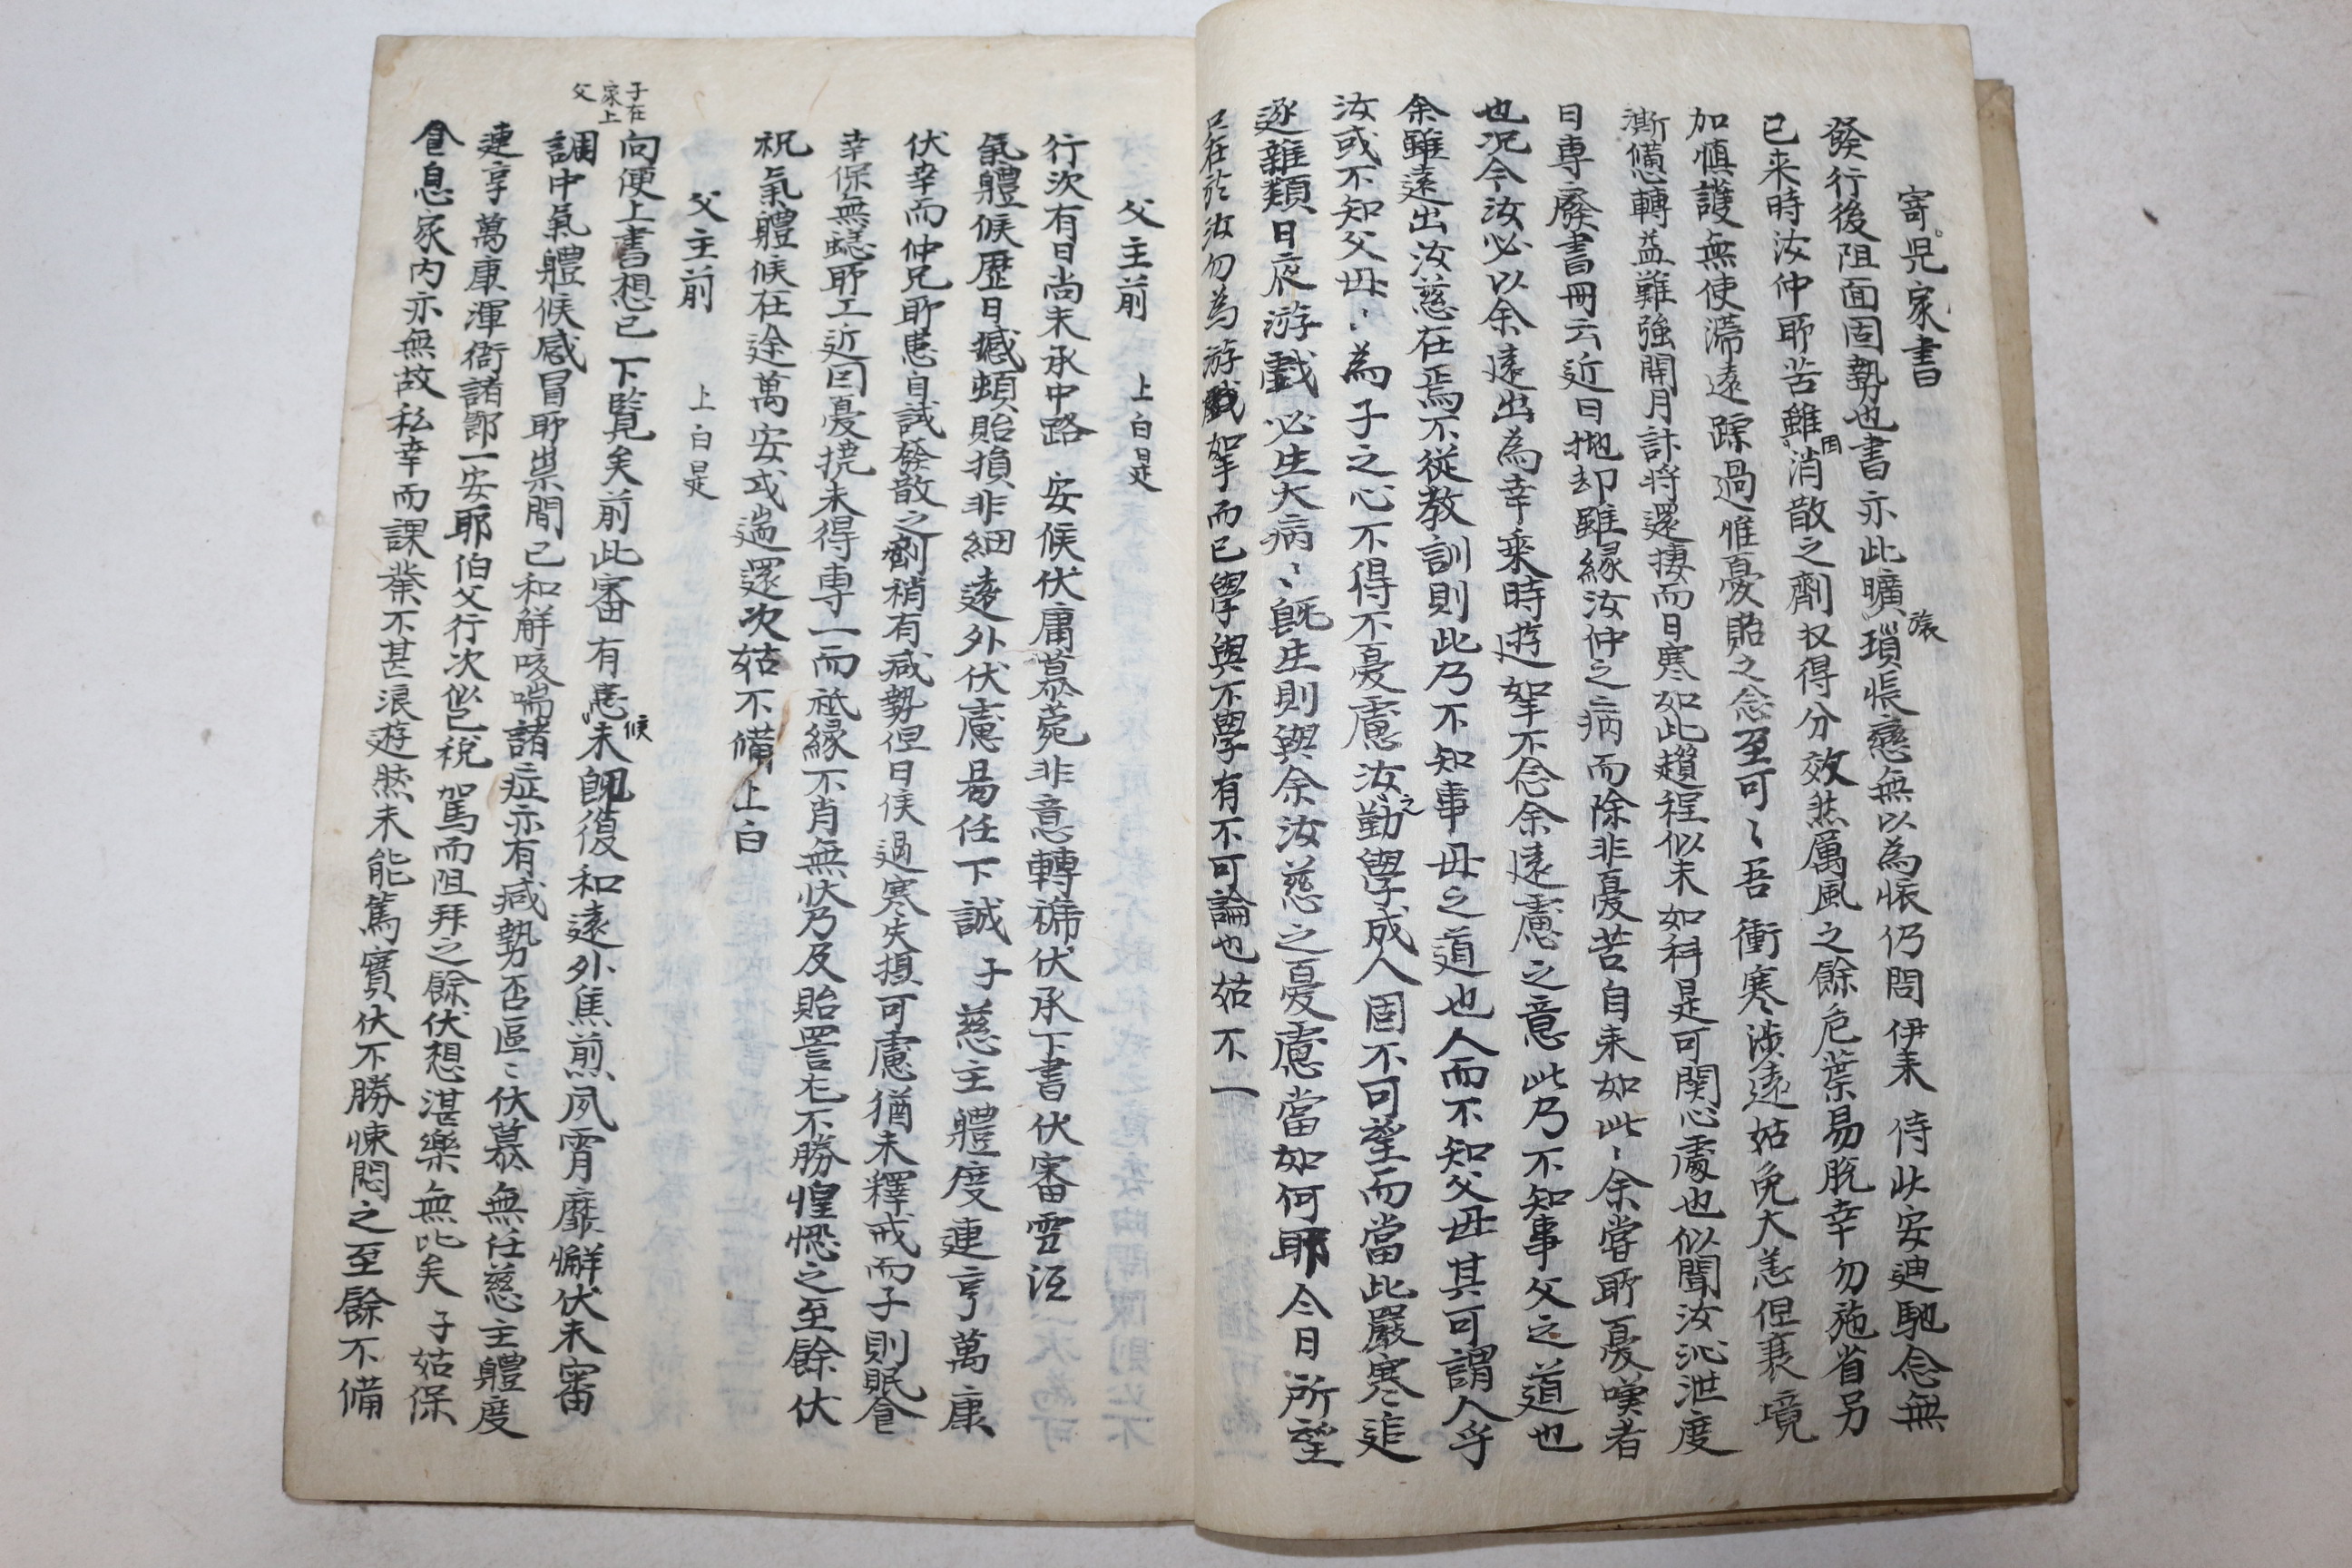 寄兒家書
發行後阻面固勢也書亦此曠瑣悵戀無以為悵仍問伊來 侍狀安迪馳念無
已来時汝仲耶苦雖因消散之劑 得分效然厲風之餘危葉易脫幸勿施省另
加慎護無使滯遠 過惟憂貽之念至可〻吾 衝寒涉遠姑免大恙但衰境
澌憊轉益難強開月計將還捿而日寒如此趲程似未如料是可関心處也似聞汝沁泄度
日專廢書冊云近日抛却雖緣汝仲之病而除非憂苦自来如此〻余嘗耶憂嘆者
也况今汝必以余遠出為幸乘時遊挐不念余遠慮之意此乃不知事父之道也
余雖遠出汝慈在焉不從教訓則此乃不知事母之道也人而不知父母其可謂人乎
汝或不知父母〻為子之心不得不憂慮汝之勤學成人固不可望而當此嚴寒追
逐雜類日夜游戲必生大病〻旣生則與余汝慈之憂慮當如何耶今日所望
只在於汝勿為游戲挐而已學與不學有不可論也姑不一
父主前 上白是
行次有日尚未承中路 安候伏庸慕菀非意轉褫伏承下書伏審雪沍
氣體候歷日撼頓貽損非細遠外伏慮曷任下誠 子 慈主體度連亨萬康
伏幸而仲兄耶患自試發散之劑稍有减勢但日候過寒失攝可慮猶未釋戒而子則眠食
幸保無蜣耶工近因憂撓未得專一而祗緣不肖無狀乃及貽詈 不勝惶恐之至餘伏
祝氣體候在途萬安式遄還次姑不備上白
父主前 上白是
子在家上父
向便上書想已 下覧矣前此審 有患候未 復和遠外焦煎夙霄靡懈伏未審
調中氣體候感冒耶祟間已和解咳喘諸症亦有减勢否區〻伏慕無任慈主體度
連享萬康渾衙諸節一安耶伯父行次似已税 駕而阻拜之餘伏想湛樂無比矣 子姑保
食息家内亦無故私幸而課業不甚浪遊然未能篤實伏不勝悚悶之至餘不備